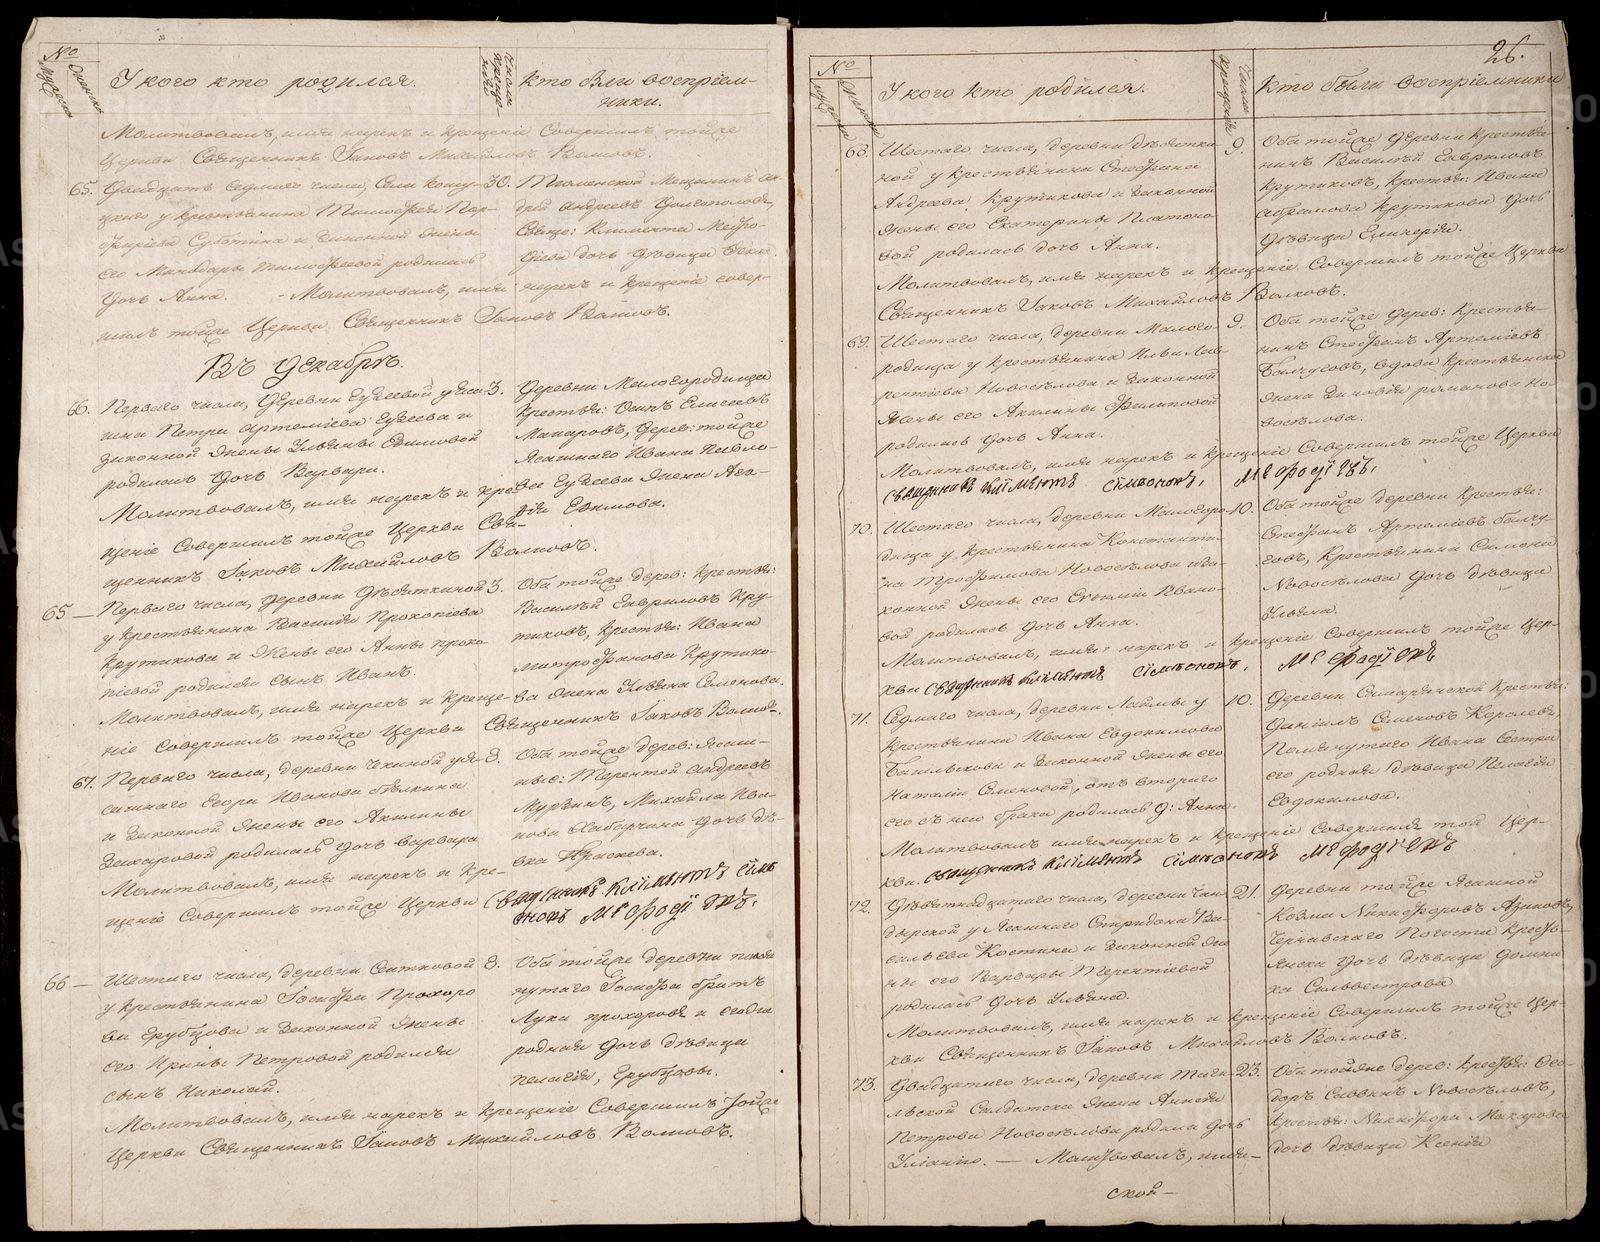 №
мужеска
женска
У кого кто родился.
Числа крещенія
кто были воспріем-
ники.
Молитвовалъ, имя нарекъ и крещеніе Совершилъ тойже
Церкви Священникъ Іаковъ Михайловъ Волковъ.
65. Двадцать седмаго числа, Села
у крестьянина Тимофея Пор-
фирьева Субботина и законной жены
его родилась
дочь Анна. - Молитвовалъ, имя
шилъ тойже Церкви Священникъ Іаковъ Волковъ.
30. Тюменской Мещанинъ Ан-
дрей Андреевъ Долгополовъ,
Свяще: Климента Мефо-
діева дочь девица
нарекъ и крещеніе совер-
Въ Декабре.
66. Перваго числа, деревни Еузеевой у Яса-
шна Петра Артеміева Еузеева и
законной жены Ульяны Ефимовой
родилась дочь Варвара.
Молитвовалъ, имя нарекъ и кре-
щеніе Совершилъ тойже Церкви Свя-
щенникъ Іаковъ Михайловъ Волковъ.
3. Деревни Малогородища
крестья: Осипъ Елисеевъ
Макаровъ, дерев: тойже
Ясашнаго Ивана Павло-
ва Еузеева жена Ага-
фія Ефимова.
65 — Перваго числа, деревни Десяткиной
у крестьянина Василія Прокопіева
Крутикова и жены его Анны проко-
піевой родился сынъ Иванъ.
Молитвовалъ, имя нарекъ и креще-
ніе Совершилъ тойже Церкви Священникъ Іаковъ Волков.
3. Оба тойже дерев: крестья:
Василей Гавриловъ Кру-
тиковъ, крестья: Ивана
митрофанова Крутико-
ва жена Ульяна Семенова.
67. Перваго числа, деревни Чекиной у Я-
сашнаго Егора Иванова белкина
и законной жены его Акилины
Захаровой родилась дочь варвара
Молитвовалъ, имя нарекъ и кре-
щеніе Совершилъ тойже Церкви
8. Оба тойже дерев: Ясаш-
ные: Терентей Андреевъ
Мурзинъ, Михайла Ива-
нова Хабарчина дочь де-
вка Праскева.
Священникъ Климентъ Симе
оновъ Мефодіевъ.
66 — Шестаго числа, деревни Сеитковой
у крестьянина Іосифа Прохоро
ва Ерубцова и законной жены
его Ирины Петровой родился
сынъ Николай.
Молитвовалъ, имя нарекъ и крещеніе Совершилъ тойже
Церкви Священникъ Іаковъ Михайловъ Волковъ.
8. Оба тойже деревни помя
нутаго Іосифа братъ
Лука прохоровъ и его
родная дочь девица
пелагія, Ерубцовы.
26.
№
мужеска
женска
У кого кто родился.
Числа крещенія
кто были воспріемники
68. Шестаго числа, деревни десятки-
ной у крестьянина Стефана
Андреева Крутикова и законной
жены его Екатерины Платоно-
вой родилась дочь Анна.
Молитвовалъ, имя нарекъ и крещеніе Совершилъ тойже Церкви
Священникъ Іаковъ Михайловъ Волковъ.
9. Оба тойже деревни крестья-
нинъ Василей Гавриловъ
крутиковъ, крестья: Ивана
Абрамова крутикова дочь
девица Гликерія.
69. Шестаго числа, деревни Малого-
родища у крестьянина Ильи Лав-
рентіева Новоселова и законной
жены его Акилины Филиповой
родилась дочь Анна.
Молитвовалъ, имя нарекъ и крещеніе Совершилъ тойже Церкви
священникъ Климентъ Симеоновъ, Мефодіевъ,
9. Оба тойже дерев: Крестья-
нинъ Стефанъ Артеміевъ
Балчуговъ, вдова крестьянска
жена Зиновія романова Но-
воселова.
70. Шестаго числа, деревни Малогоро-
дища у крестьянина Константи-
на Трофимова Новоселова и за-
конной жены его Евфиміи Ивано-
вой родилась дочь Анна.
Молитвовалъ, имя нарекъ и крещеніе Совершилъ тойже Цер-
кви священникъ Климентъ Симеоновъ, Мефодіевъ
10. Оба тойже деревни Крестья:
Стефанъ Артеміевъ балчу-
говъ, Крестьянина Симеона
Новоселова дочь девица
Ульяна.
71. Седмаго числа, деревни Лаймы у
крестьянина Ивана Евдокимова
и законной жены его
Наталіи Семеновой, отъ втораго
его съ нею брака родилась д: Анна.
Молитвовалъ имя нарекъ и крещеніе Совершилъ той Цер-
кви. священникъ Климентъ Симеоновъ Мефодіевъ
10. Деревни Крестья:
Даніилъ Семеновъ Королевъ,
Помянутаго Ивана Сестра
его родная девица Пелагія
Евдокимова.
72. Деветнадцатаго числа, деревни Чан-
дырской у Ясашнаго Спиридона Ва-
сильева Костина и законной же
ны его Варвары Терентіевой
родилась дочь Ульяна.
Молитвовалъ, имя нарекъ и крещеніе Совершилъ тойже Цер-
кви Священникъ Іаковъ Михайловъ Волковъ.
21. Деревни тойже Ясашной
Козма Никифоровъ Азановъ,
Чернавскаго Погоста кресть-
янска дочь девица Домни-
ка Сильвестрова
73. Двадцатаго числа, деревни Тага-
льской Салдатска жена Анисія
Петрова Новоселова родила дочь
Уліанію. — Молитвовалъ, имя —
23. Оба тойже дерев: крестья: Фео-
доръ Саввинъ Новоселовъ,
крестья: Никифора Макарова
дочь девица Ксенія
ской —